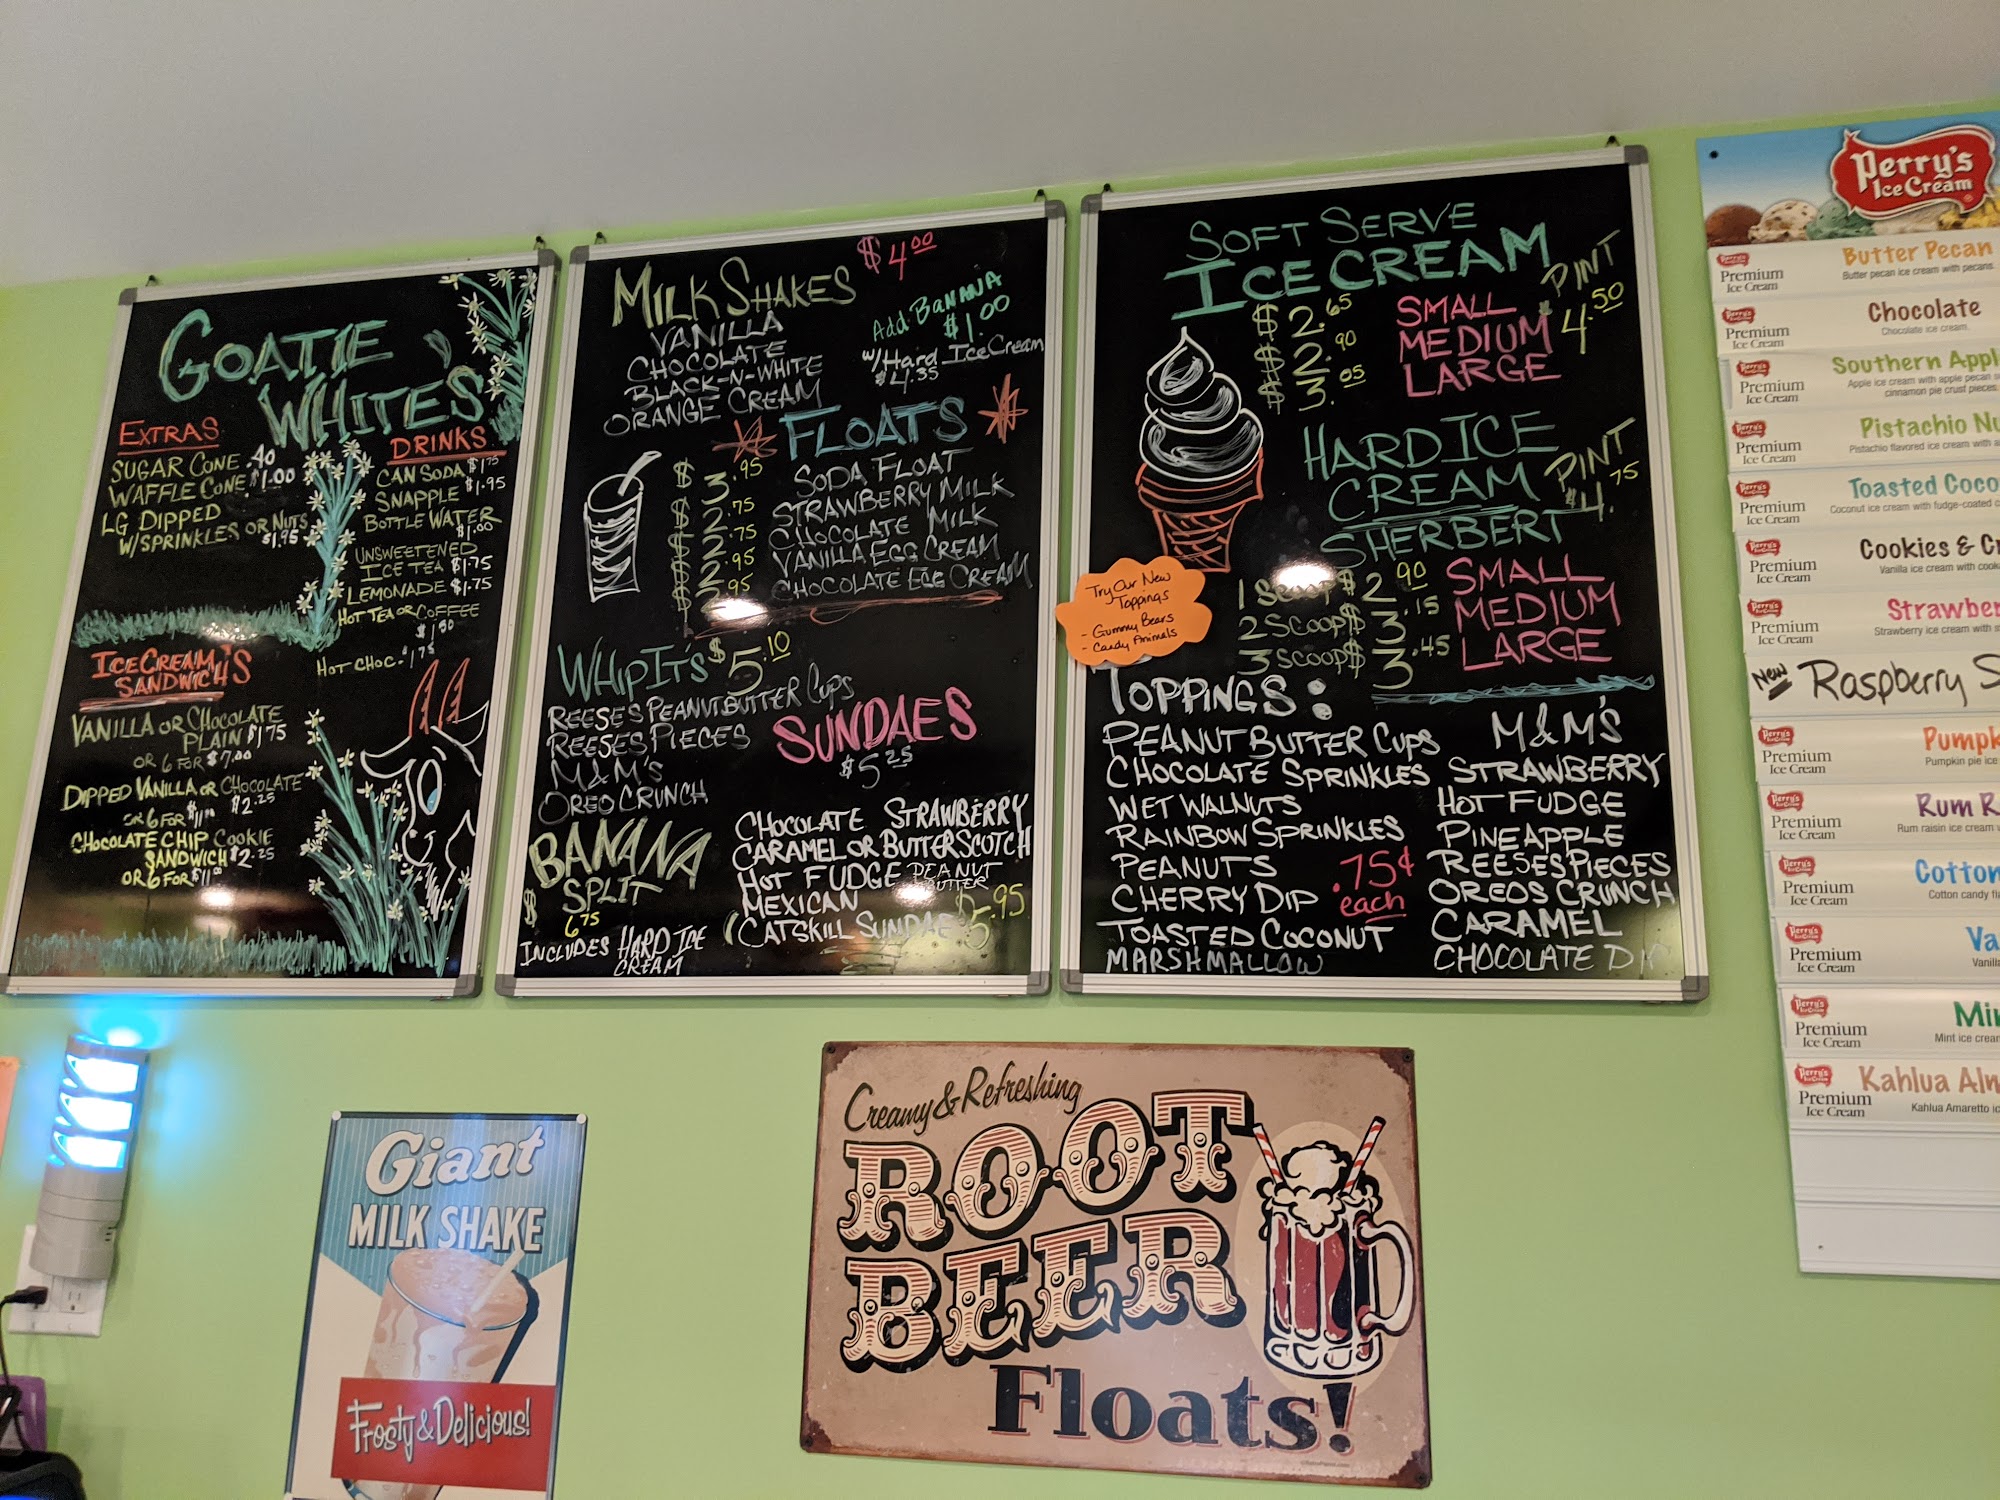 GOATIE
WHITE'S
EXTRAS
SUGAR CONE .40
WAFFLE CONE $1.00
LG DIPPED
W/SPRINKLES OR NUTS
$1.95
DRINKS
CAN SODA $1.75
SNAPPLE $1.95
BOTTLE WATER
$1.00
UNSWEETENED
ICE TEA $1.75
LEMONADE $1.75
HOT TEA OR COFFEE
$1.50
HOT CHOC. $1.75
ICE CREAM
SANDWICH'S
VANILLA OR CHOCOLATE
PLAIN $1.75
OR 6 FOR $7.00
DIPPED VANILLA OR CHOCOLATE
$2.25
OR 6 FOR $11.00
CHOCOLATE CHIP COOKIE
SANDWICH $2.25
OR 6 FOR $11.00
MILK SHAKES $4.00
VANILLA
CHOCOLATE
BLACK-N-WHITE
ORANGE CREAM
Add BANANA
$1.00
w/Hard Ice Cream
$4.35
FLOATS
$3.95 SODA FLOAT
$2.75 STRAWBERRY MILK
$2.75 CHOCOLATE MILK
$2.95 VANILLA EGG CREAM
$2.95 CHOCOLATE EGG CREAM
WHIP IT'S $5.10
REESES PEANUT BUTTER CUPS
REESES PIECES
M&M'S
OREO CRUNCH
BANANA
SPLIT
$6.75
INCLUDES HARD ICE
CREAM
SUNDAES
$5.25
CHOCOLATE STRAWBERRY
CARAMEL OR BUTTERSCOTCH
HOT FUDGE PEANUT
BUTTER
MEXICAN
CATSKILL SUNDAE $5.95
SOFT SERVE
ICE CREAM
$2.65 SMALL
$2.90 MEDIUM
$3.05 LARGE
PINT
4.50
HARD ICE
CREAM
SHERBERT
PINT
$4.75
1 SCOOP $2.90 SMALL
2 SCOOP $3.15 MEDIUM
3 SCOOP $3.45 LARGE
Try Our New
Toppings
- Gummy Bears
- Candy Animals
TOPPINGS:
PEANUT BUTTER CUPS
CHOCOLATE SPRINKLES
WET WALNUTS
RAINBOW SPRINKLES
PEANUTS
CHERRY DIP
TOASTED COCONUT
MARSHMALLOW
.75¢
each
M&M'S
STRAWBERRY
HOT FUDGE
PINEAPPLE
REESES PIECES
OREOS CRUNCH
CARAMEL
CHOCOLATE DIP
Perry's
Ice Cream
Perry's
Premium
Ice Cream
Butter Pecan
Butter pecan ice cream with pecans.
Perry's
Premium
Ice Cream
Chocolate
Chocolate ice cream.
Perry's
Premium
Ice Cream
Southern Apple
Apple ice cream with apple pecan
cinnamon pie crust pieces.
Perry's
Premium
Ice Cream
Pistachio Nu
Pistachio flavored ice cream with
Perry's
Premium
Ice Cream
Toasted Coco
Coconut ice cream with fudge-coated
Perry's
Premium
Ice Cream
Cookies & Cr
Vanilla ice cream with
Perry's
Premium
Ice Cream
Strawber
Strawberry ice cream with
New
Raspberry S
Perry's
Premium
Ice Cream
Pumpk
Pumpkin pie ice
Perry's
Premium
Ice Cream
Rum R
Rum raisin ice cream
Perry's
Premium
Ice Cream
Cotton
Cotton candy
Perry's
Premium
Ice Cream
Va
Vanilla
Perry's
Premium
Ice Cream
Min
Mint ice cream
Perry's
Premium
Ice Cream
Kahlua Alm
Kahlua Amaretto ic
Giant
MILK SHAKE
Frosty & Delicious!
Creamy & Refreshing
ROOT
BEER
Floats!